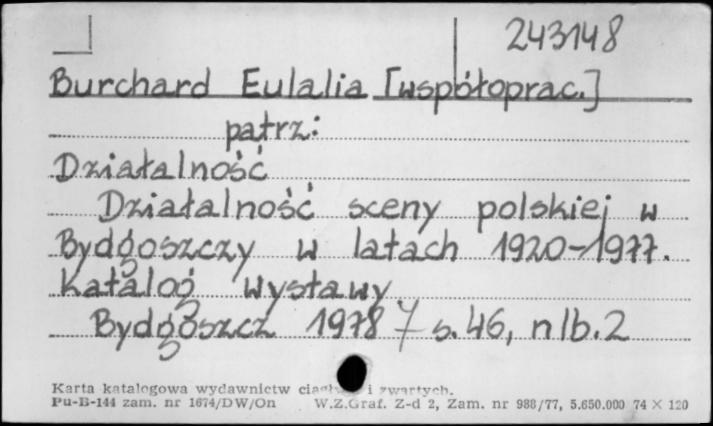 243148
Burchard Eulalia [współoprac.]
patrz:
Działalność
Działalność sceny polskiej w
Bydgoszczy w latach 1920-1977.
Katalog wystawy
Bydgoszcz 1978 s. 46, nlb. 2
Karta katalogowa wydawnictw i zwartych.
Pu-B-144 zam. nr 1674/DW/On W.Z.Graf. Z-d 2, Zam. nr 988/77, 5.650.000 74 × 120